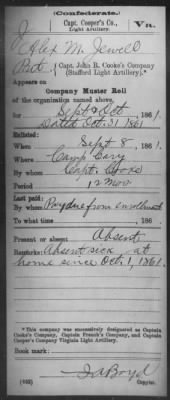 (Confederate.)
Capt. Cooper's Co.,
Light Artillery.
Va.
J. Alex M. Jewell
Pvt, { Capt. John R. Cooke's Company
(Stafford Light Artillery).*
Appears on
Company Muster Roll
of the organization named above,
for Sept & Oct, 1861.
Dated Oct. 31, 1861
Enlisted:
When Sept 8, 1861.
Where Camp Cary
By whom Capt. Cooke
Period 12 mos
Last paid:
By whom Pay due from enrollment
To what time , 186 .
Present or absent Absent
Remarks: Absent sick at
home since Oct. 1, 1861.
*This company was successively designated as Captain
Cooke's Company, Captain French's Company, and Captain
Cooper's Company Virginia Light Artillery.
Book mark:
(642) Copyist.